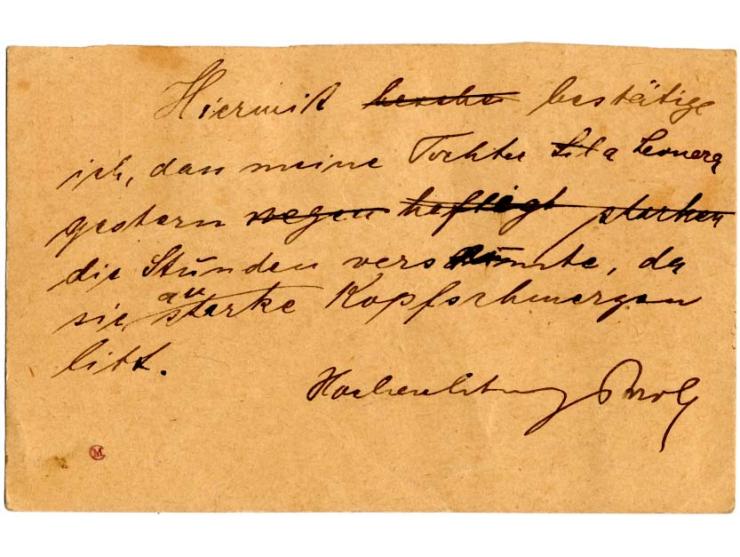 Hiermit bestätige
ich, dan meine Tochter Lila Leonera
gestern wegen heftigt starken
die Stunden versäumte, da
sie an starke Kopfschmerzen
litt.
M